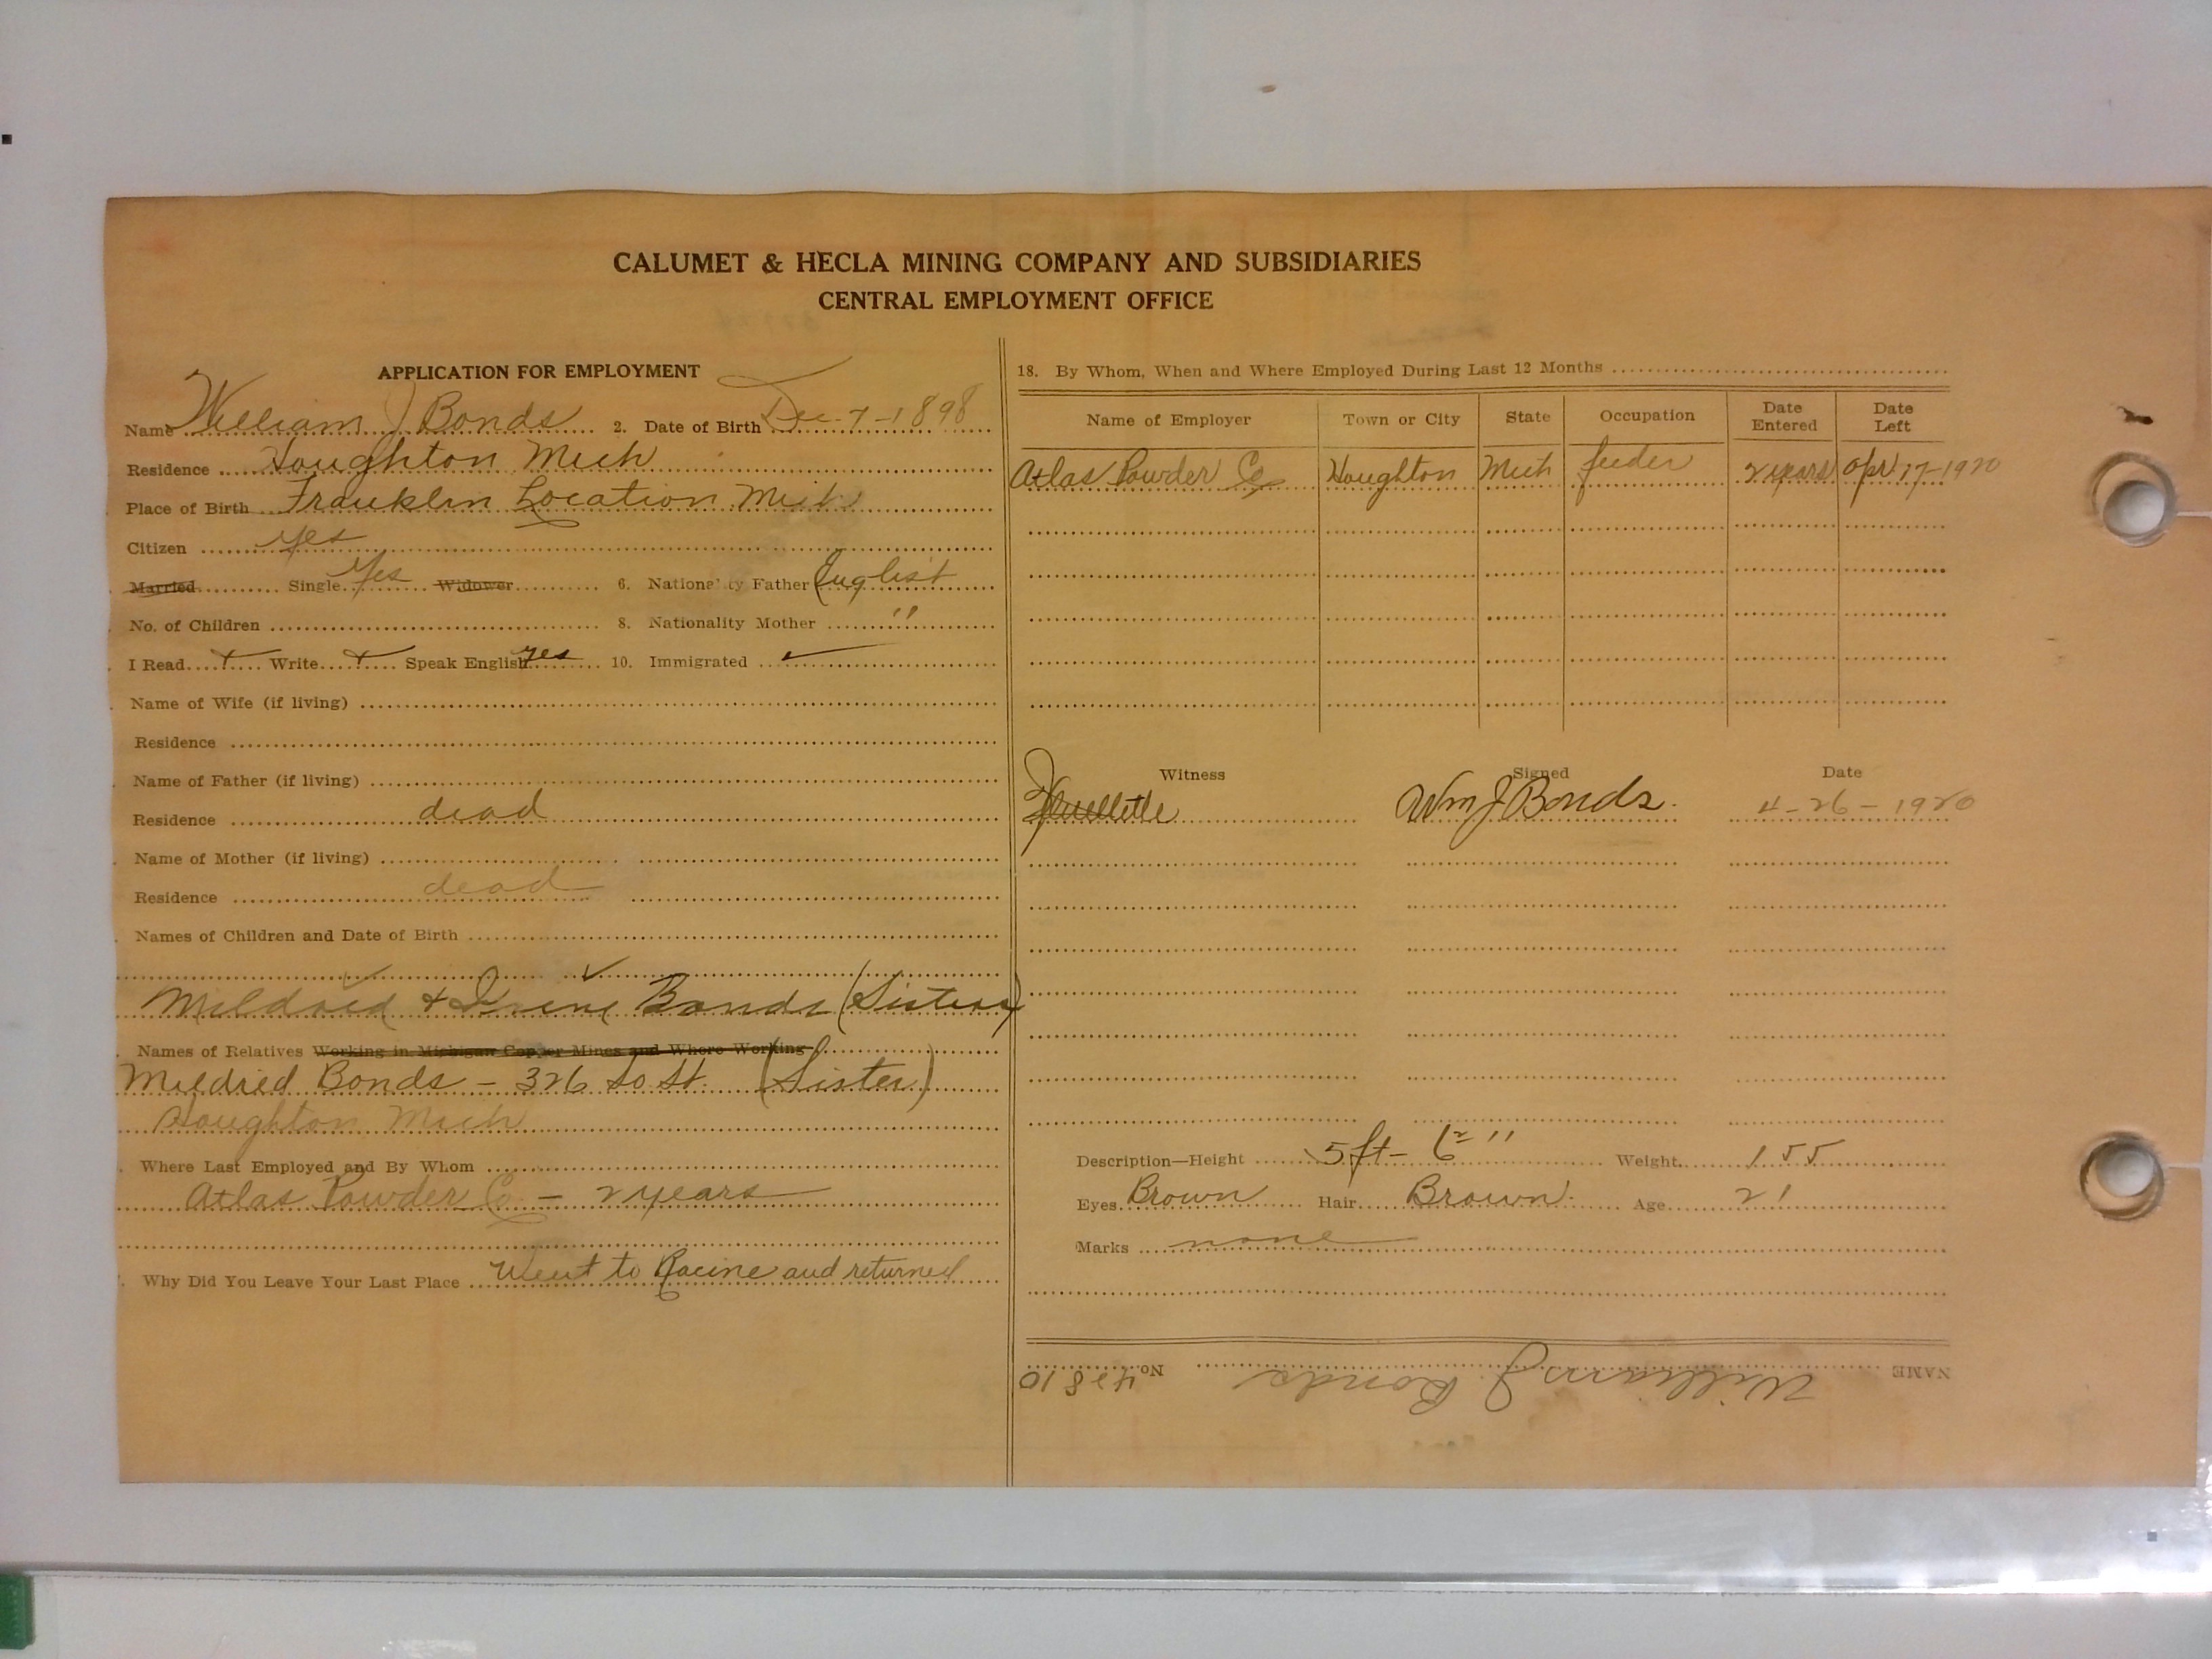 CALUMET & HECLA MINING COMPANY AND SUBSIDIARIES
CENTRAL EMPLOYMENT OFFICE
APPLICATION FOR EMPLOYMENT
Name William J Bonds 2. Date of Birth Dec-7-1898
Residence Houghton Mich
Place of Birth Franklin Location Mich
Citizen Yes
Married Single Yes Widower 6. Nationality Father English
No. of Children 8. Nationality Mother "
I Read + Write + Speak English yes 10. Immigrated ✓
Name of Wife (if living)
Residence
Name of Father (if living)
Residence dead
Name of Mother (if living)
Residence dead
Names of Children and Date of Birth
✓ ✓
Mildred & Irene Bonds (Sisters)
Names of Relatives Working in Michigan Copper Mines and Where Working
Mildred Bonds - 326 So St. (Sister)
Houghton Mich
Where Last Employed and By Whom
Atlas Powder Co - 2 years
Why Did You Leave Your Last Place Went to Racine and returned
18. By Whom, When and Where Employed During Last 12 Months
Name of Employer Town or City State Occupation Date Entered Date Left
Atlas Powder Co Houghton Mich feeder 2 years Apr 17-1920
Witness Signed Date
Wm J Bonds. 4-26-1920
Description—Height 5 ft- 6" Weight 155
Eyes Brown Hair Brown. Age 21
Marks none
NAME William J. Bonds No. 42810